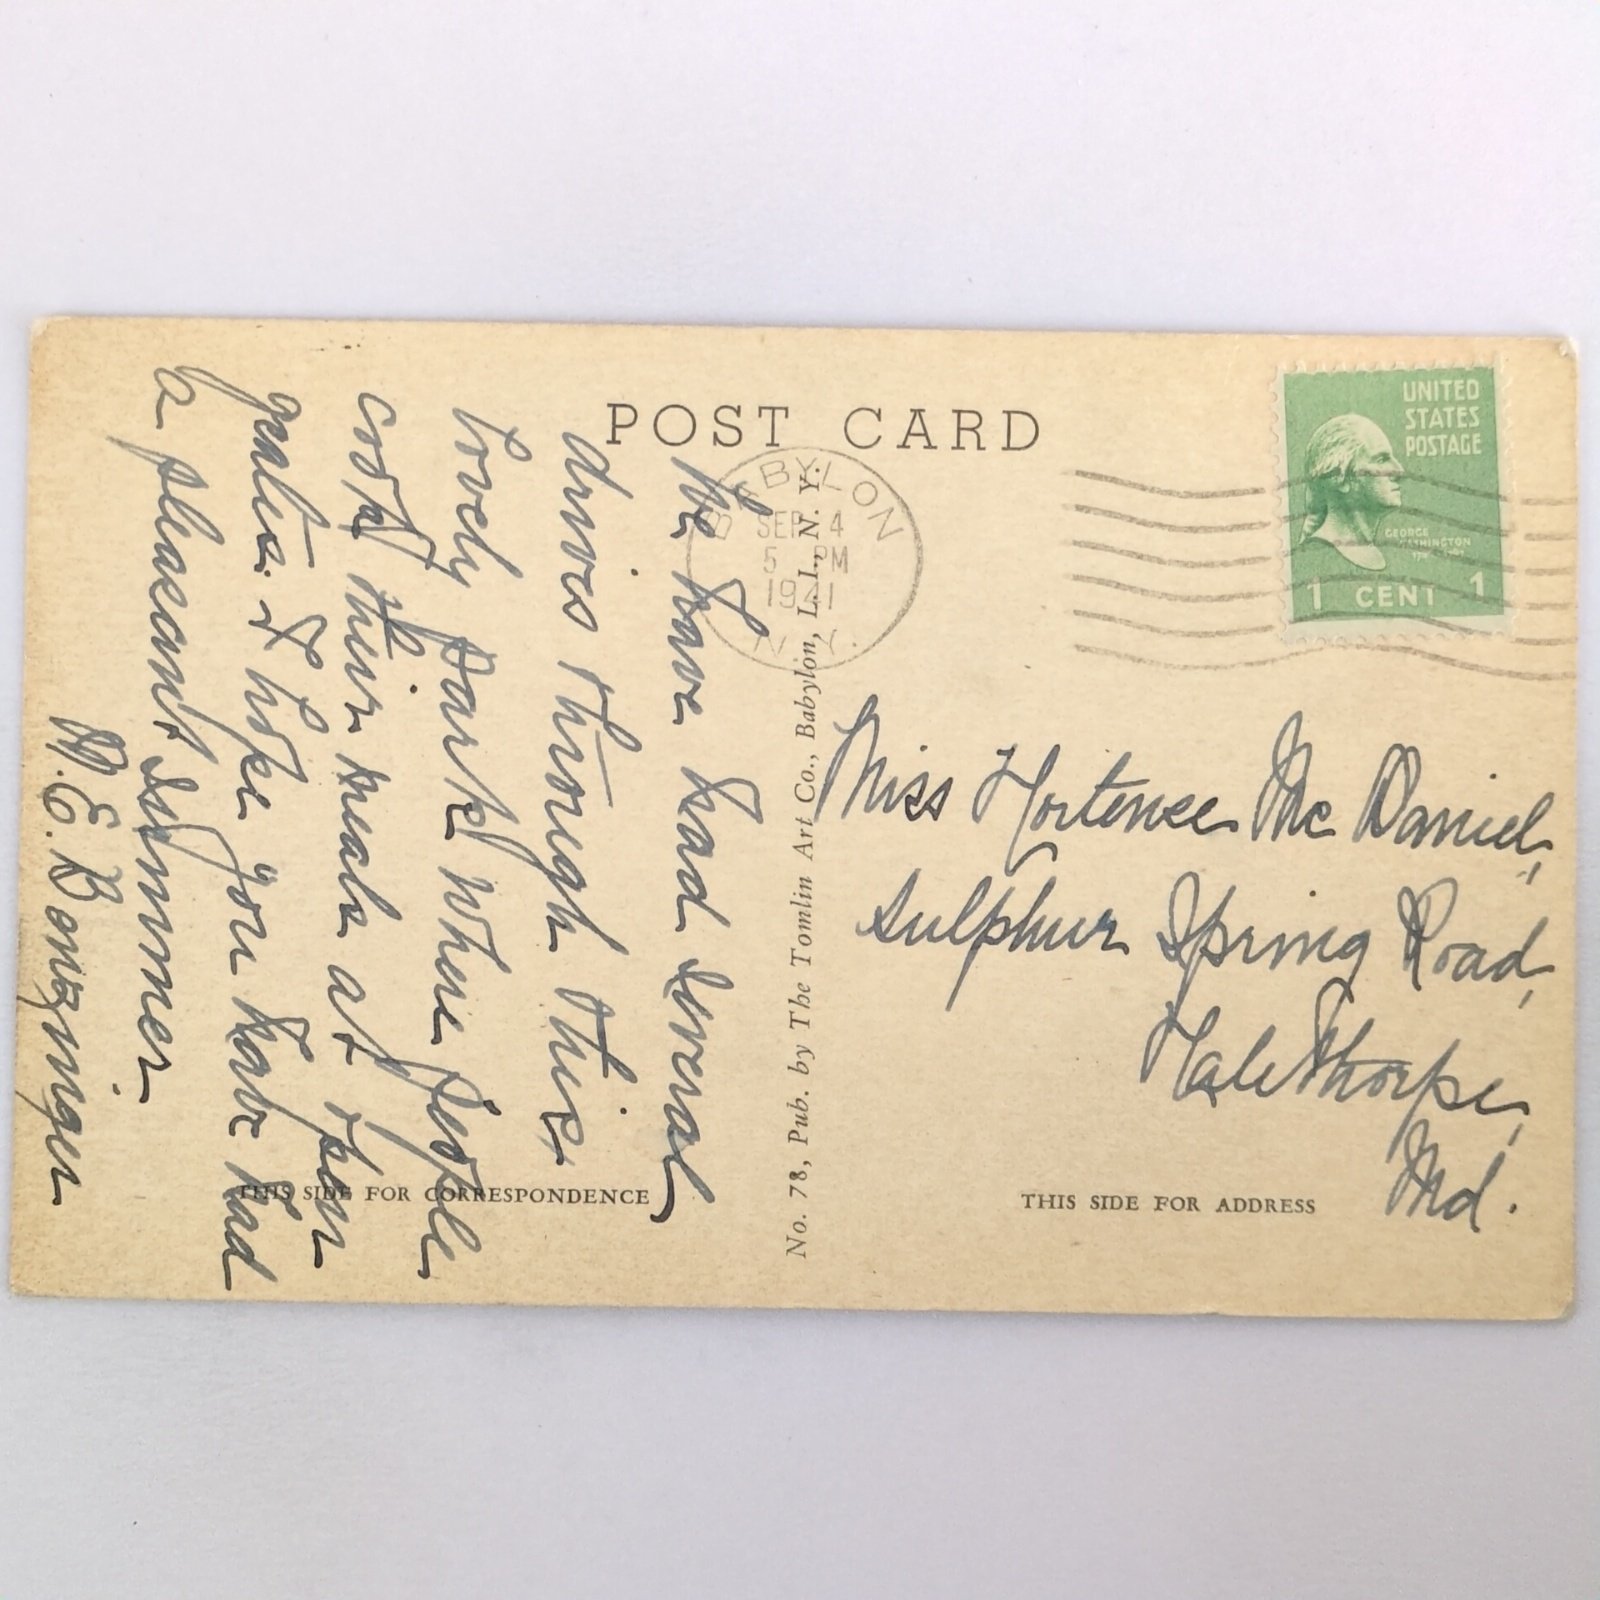 POST CARD
BABYLON
SEP 4
5 PM
1941
N.Y.
UNITED
STATES
POSTAGE
GEORGE
WASHINGTON
1 CENT 1
We have had several
drives through this
lovely Park where people
cook their meals at open
grates. I hope you have had
a pleasant summer.
No. 78, Pub. by The Tomlin Art Co., Babylon, L. I., N. Y.
Miss Hortense Mc Daniel,
Sulphur Spring Road,
Halethorpe,
Md.
THIS SIDE FOR CORRESPONDENCE
THIS SIDE FOR ADDRESS